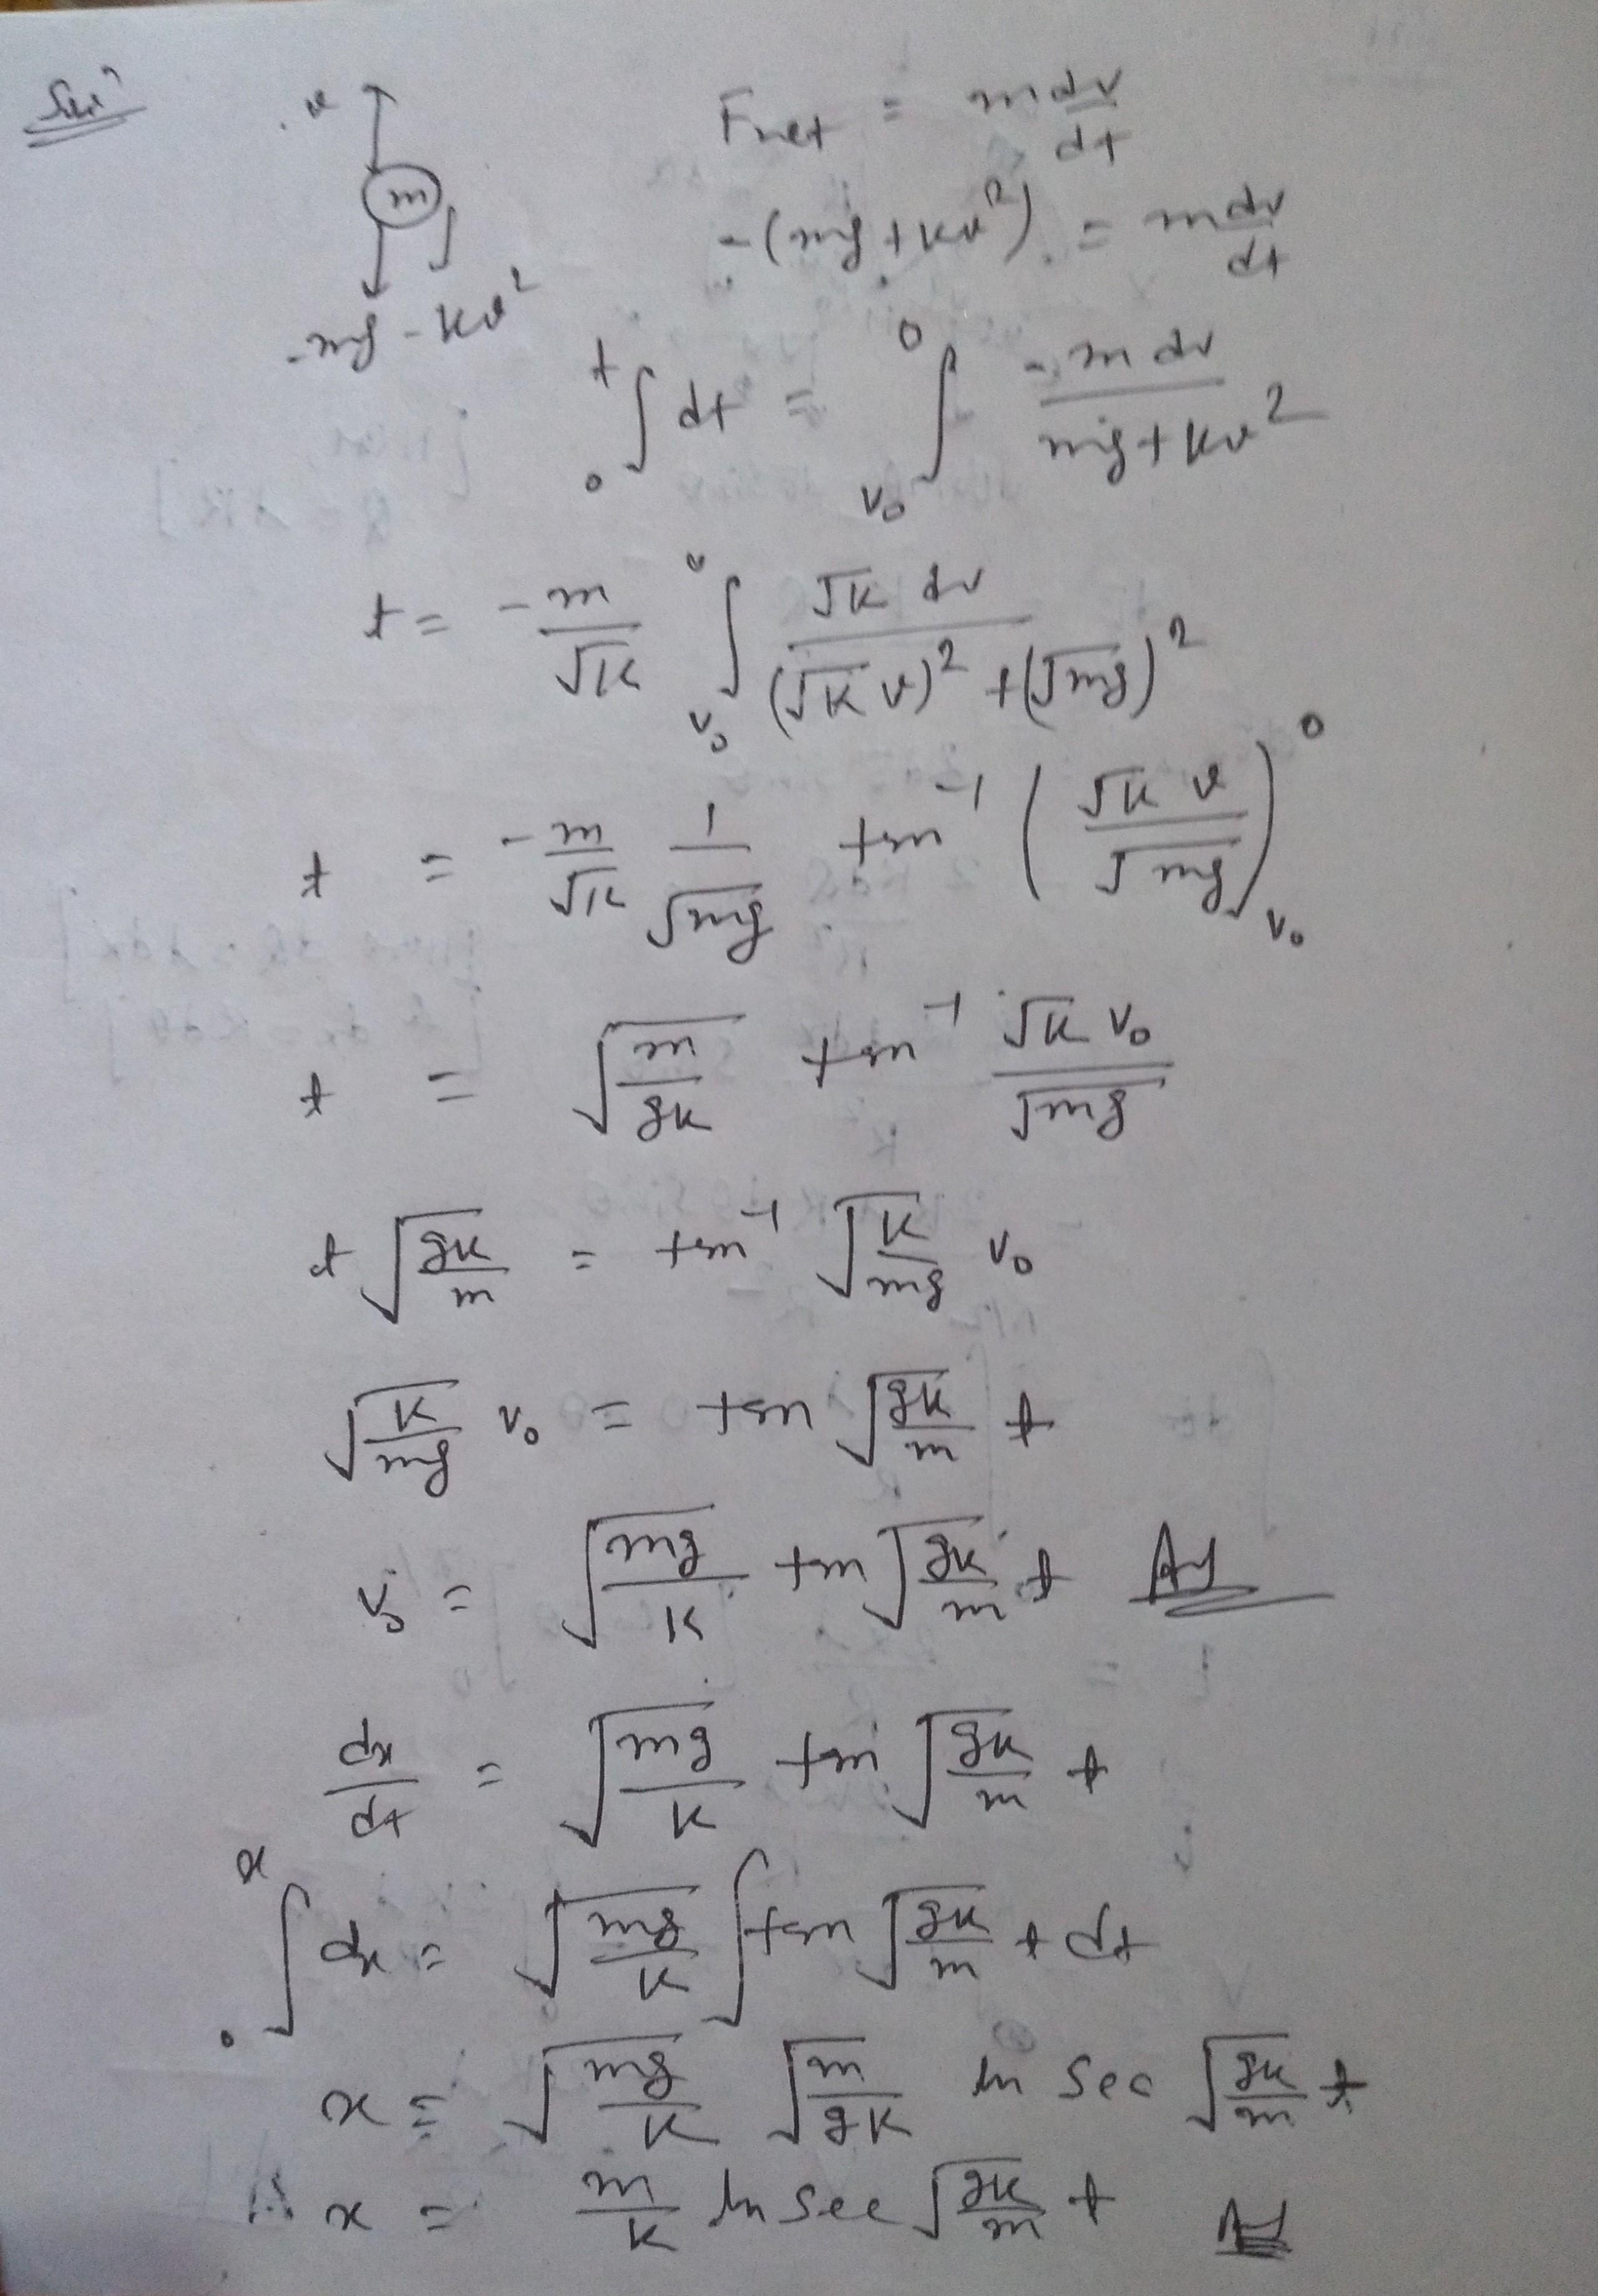 Solⁿ
v
m
-mg -kv²
Fnet = m dv/dt
-(mg + kv²) = m dv/dt
∫₀ᵗ dt = ∫_{v₀}^{0} -m dv / (mg + kv²)
t = -m/√k ∫_{v₀}^{0} √k dv / ((√k v)² + (√mg)²)
t = -m/√k 1/√mg tan⁻¹ (√k v / √mg)_{v₀}^{0}
t = √(m/gk) tan⁻¹ √k v₀ / √mg
t √(gk/m) = tan⁻¹ √(k/mg) v₀
√(k/mg) v₀ = tan √(gk/m) t
v₀ = √(mg/k) tan √(gk/m) t Ans
dx/dt = √(mg/k) tan √(gk/m) t
∫₀ˣ dx = √(mg/k) ∫ tan √(gk/m) t dt
x = √(mg/k) √(m/gk) ln sec √(gk/m) t
x = m/k ln sec √(gk/m) t Ans